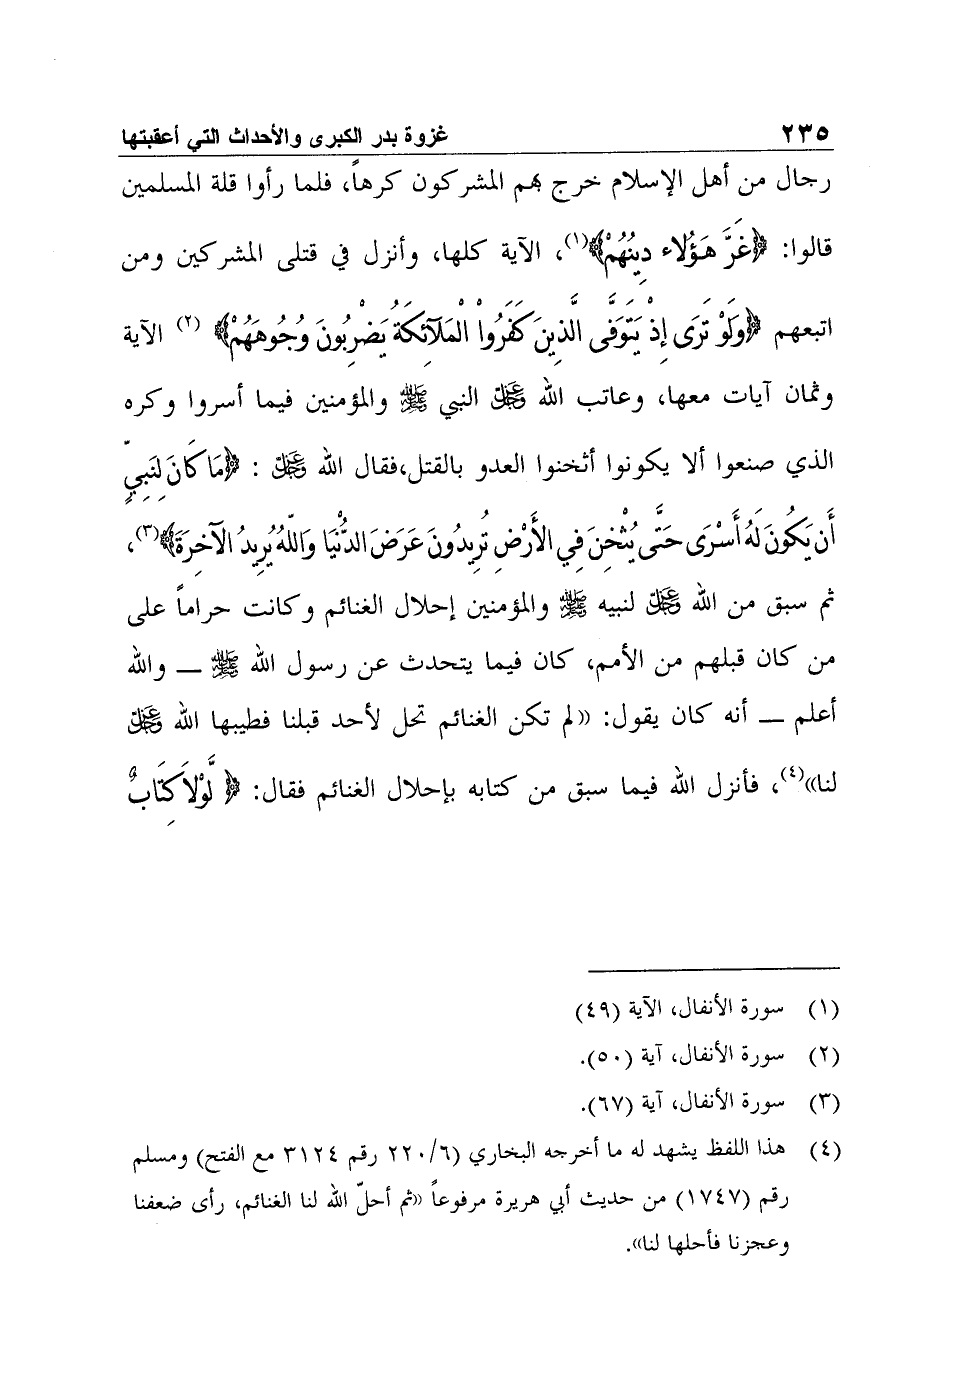 ٢٣٥ غزوة بدر الكبرى والأحداث التي أعقبتها
رجال من أهل الإسلام خرج بهم المشركون كرهاً، فلما رأوا قلة المسلمين
قالوا: ﴿غَرَّ هَؤُلاء دِينُهُمْ﴾(١)، الآية كلها، وأنزل في قتلى المشركين ومن
اتبعهم ﴿وَلَوْ تَرَى إِذْ يَتَوَفَّى الَّذِينَ كَفَرُواْ الْمَلآئِكَةُ يَضْرِبُونَ وُجُوهَهُمْ﴾ (٢) الآية
وثمان آيات معها، وعاتب الله عَزَّ وَجَلَّ النبي ﷺ والمؤمنين فيما أسروا وكره
الذي صنعوا ألا يكونوا أثخنوا العدو بالقتل،فقال الله عَزَّ وَجَلَّ : ﴿مَا كَانَ لِنَبِيٍّ
أَن يَكُونَ لَهُ أَسْرَى حَتَّى يُثْخِنَ فِي الأَرْضِ تُرِيدُونَ عَرَضَ الدُّنْيَا وَاللّهُ يُرِيدُ الآخِرَةَ﴾(٣)،
ثم سبق من الله عَزَّ وَجَلَّ لنبيه ﷺ والمؤمنين إحلال الغنائم وكانت حراماً على
من كان قبلهم من الأمم، كان فيما يتحدث عن رسول الله ﷺ ــ والله
أعلم ــ أنه كان يقول: «لم تكن الغنائم تحل لأحد قبلنا فطيبها الله عَزَّ وَجَلَّ
لنا»(٤)، فأنزل الله فيما سبق من كتابه بإحلال الغنائم فقال: ﴿ لَّوْلاَ كِتَابٌ
(١) سورة الأنفال، الآية (٤٩)
(٢) سورة الأنفال، آية (٥٠).
(٣) سورة الأنفال، آية (٦٧).
(٤) هذا اللفظ يشهد له ما أخرجه البخاري (٢٢٠/٦ رقم ٣١٢٤ مع الفتح) ومسلم
رقم (١٧٤٧) من حديث أبي هريرة مرفوعاً «ثم أحلّ الله لنا الغنائم، رأى ضعفنا
وعجزنا فأحلها لنا».